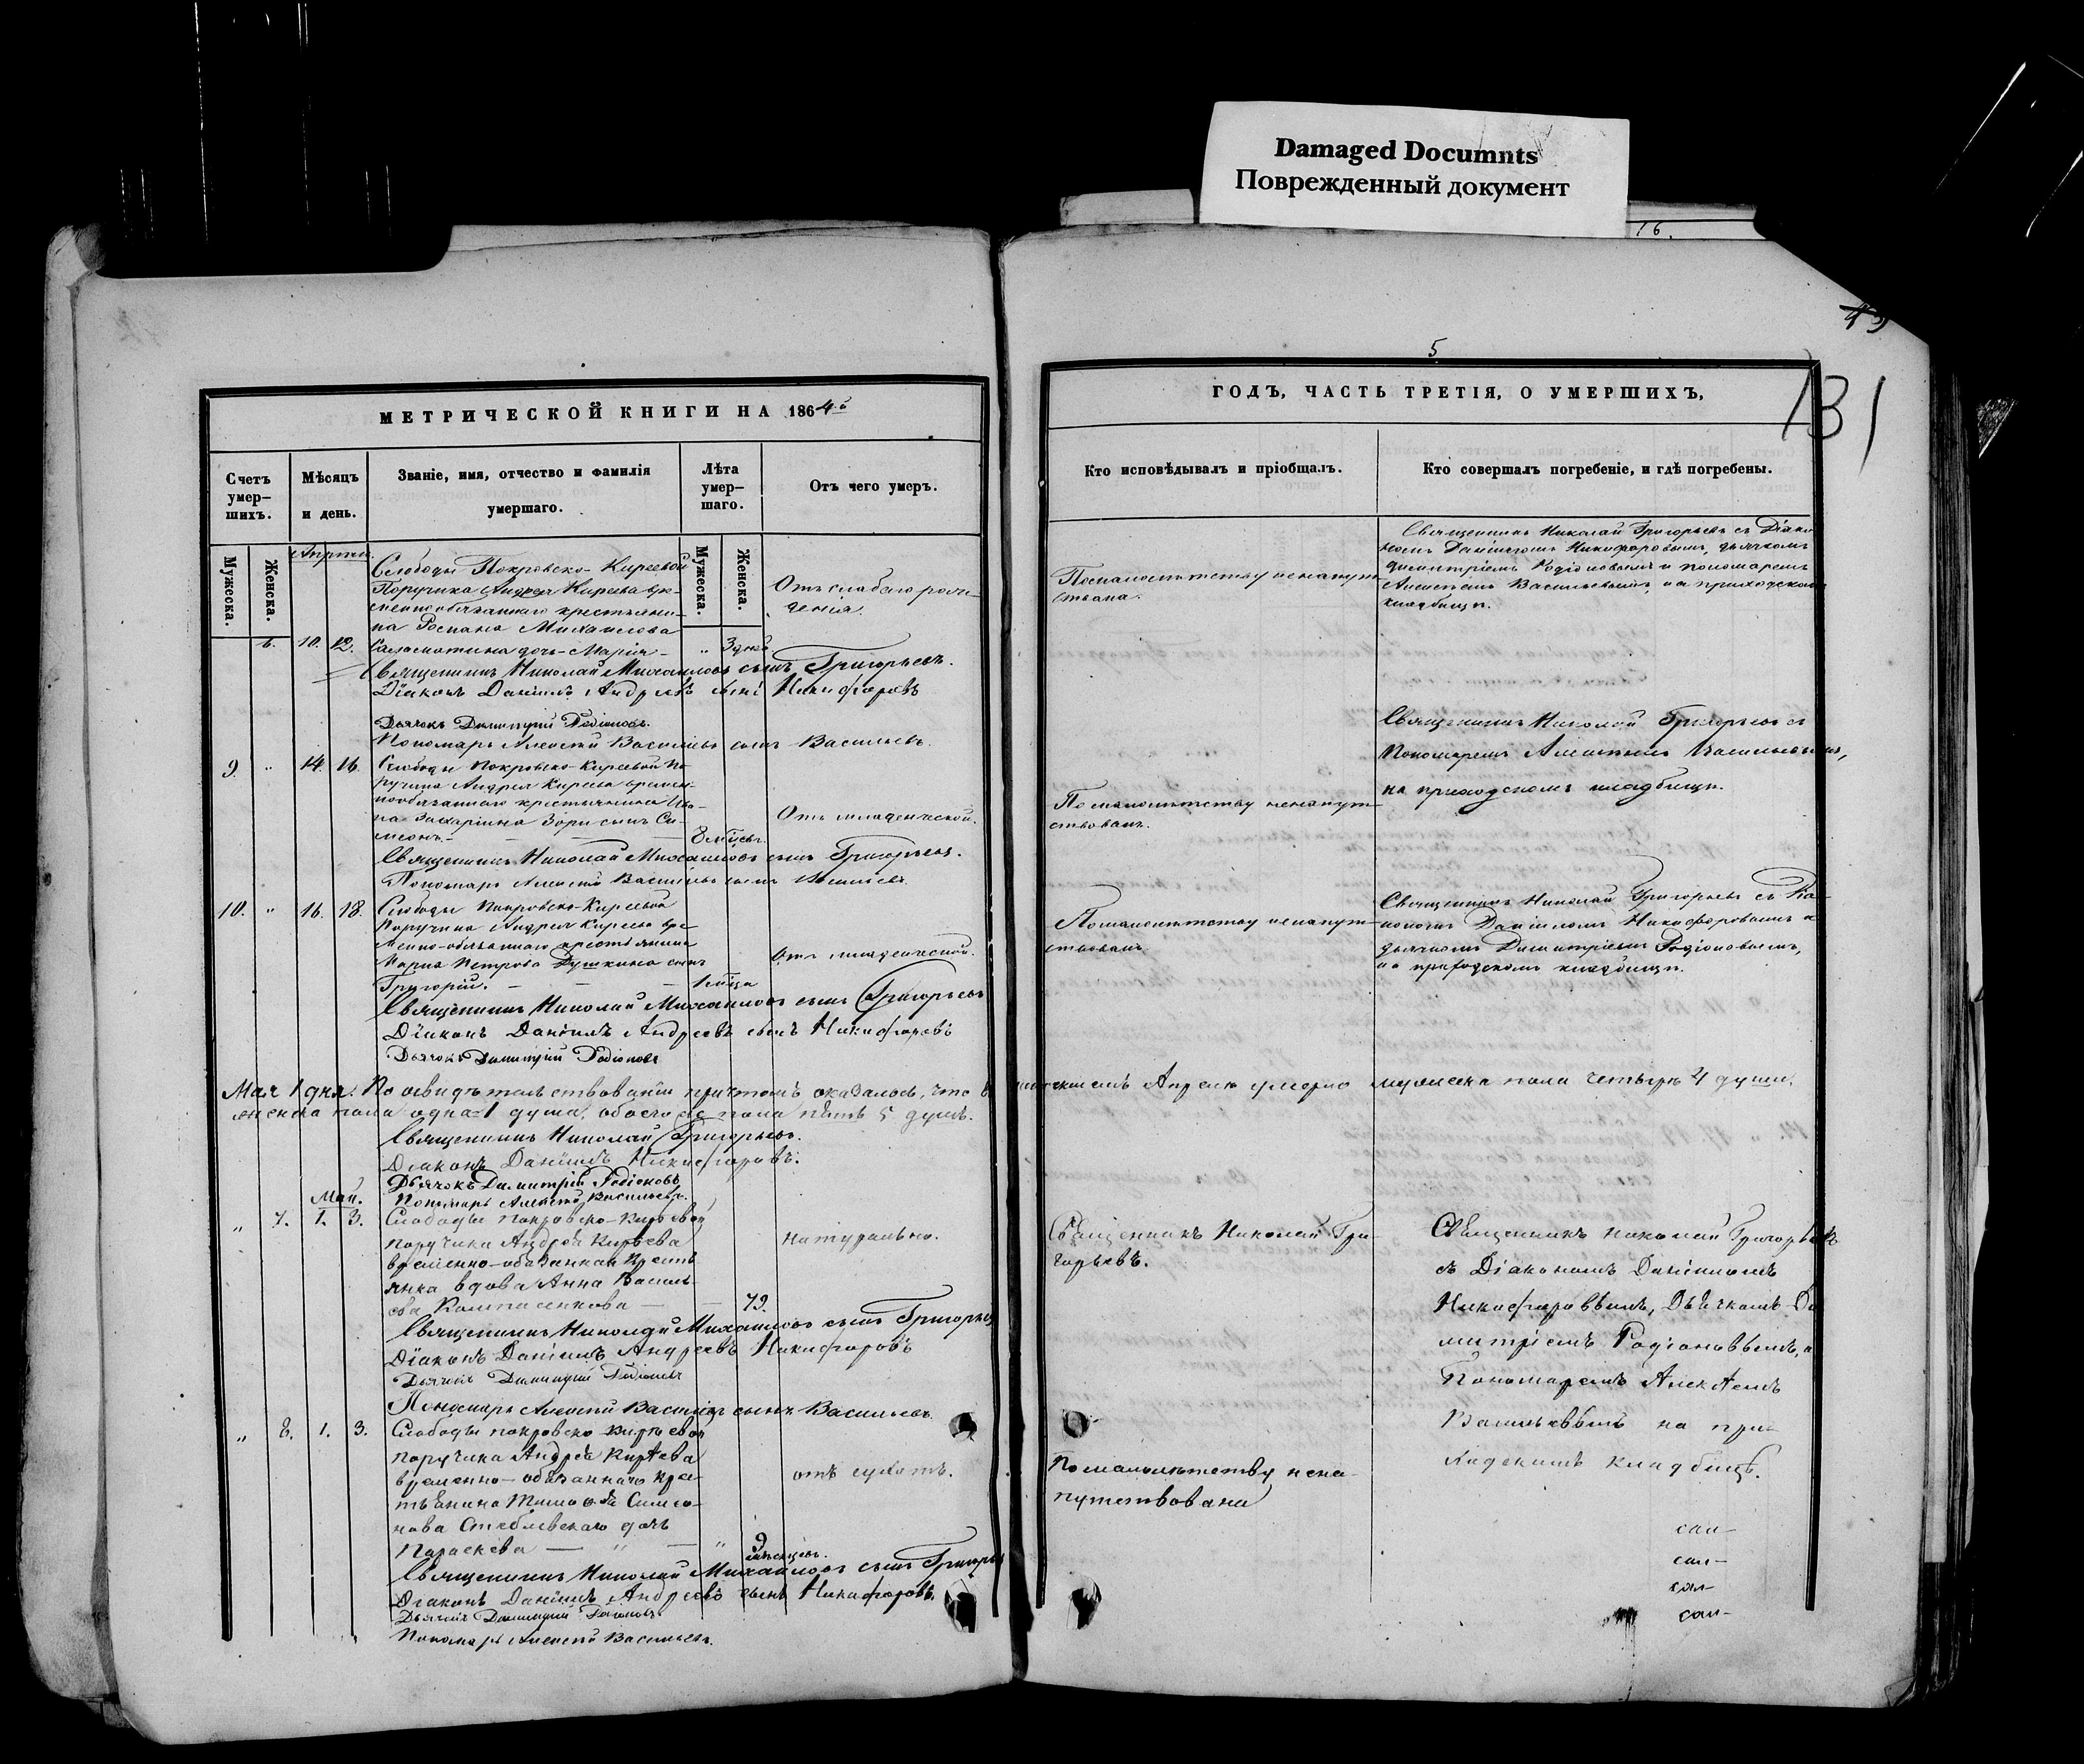 Damaged Documnts
Поврежденный документ
16.
5
131
МЕТРИЧЕСКОЙ КНИГИ НА 1864й
Счетъ умер-
шихъ.
Мѣсяцъ
и день.
Званіе, имя, отчество и фамилія
умершаго.
Лѣта
умер-
шаго.
Отъ чего умеръ.
Мужеска.
Женска.
Мужеска.
Женска.
Апрель.
Слободы Покровско-Киреевой
Поручика Андрея Киреева вре-
меннообязаннаго крестьяни-
на Романа Михаилова
6. 10. 12. дочь Марія - „ 3 дней
Отъ слабаго рож-
денія.
Священникъ Николай Михаиловъ сынъ Григорьевъ.
Діаконъ Даніилъ Андреевъ сынъ Никифоровъ
Дьячокъ Димитрій Родіоновъ.
Пономарь Алексѣй Васильевъ сынъ Васильевъ.
9. „ 14. 16. Слободы Покровско-Киреевой По-
ручика Андрея Киреева времен-
нообязаннаго крестьянина Ива-
на Захаріина сынъ Си-
меонъ. 8 мѣсяц.
Отъ младенческой.
Священникъ Николай Михаиловъ сынъ Григорьевъ.
Пономарь Алексѣй Васильевъ сынъ Васильевъ
10. „ 16. 18. Слободы Покровско-Киреевой
Поручика Андрея Киреева вре-
менно-обязаннаго крестьянина
Марка Петрова Душкина сынъ
Григорій. 1 мѣсяца
Отъ младенческой.
Священникъ Николай Михаиловъ сынъ Григорьевъ
Діаконъ Даніилъ Андреевъ сынъ Никифоровъ
Дьячокъ Димитрій Родіоновъ
Мая 1 дня. По освидѣтельствованіи причтомъ оказалось, что въ
женска пола одна 1 душа, обоего пола пять 5 душъ.
Священникъ Николай Григорьевъ.
Діаконъ Даніилъ Никифоровъ.
Дьячокъ Димитрій Родіоновъ
Пономарь Алексѣй Васильевъ.
Май.
„ 7. 1. 3. Слободы Покровско-Киреевой
поручика Андрея Киреева
временно-обязанная кресть-
янка вдова Анна Василь-
ева 79.
натурально.
Священникъ Николай Михаиловъ сынъ Григорьев
Діаконъ Даніилъ Андреевъ Никифоровъ
Дьячокъ Димитрій Родіоновъ
Пономарь Алексѣй Васильевъ сынъ Васильевъ.
„ 8. 1. 3. Слободы покровско Киреевой
поручика Андрея Кирѣева
временно-обязаннаго кре-
стьянина Тимофея Симео-
нова Стеблевскаго дочь
Параскева — „ — „ 9
мѣсяцевъ.
отъ сухотъ.
Священникъ Николай Михаиловъ сынъ Григорьев
Діаконъ Даніилъ Андреевъ сынъ Никифоровъ.
Дьячокъ Димитрій Родіоновъ
Пономарь Алексѣй Васильевъ.
ГОДЪ, ЧАСТЬ ТРЕТІЯ, О УМЕРШИХЪ,
Кто исповѣдывалъ и пріобщалъ.
Кто совершалъ погребеніе, и гдѣ погребены.
По малолѣтству ненапут-
ствована.
Священникъ Николай Григорьевъ съ Діако-
номъ Даніиломъ Никифоровымъ, дьячкомъ
Димитріемъ Родіоновымъ и пономаремъ
Алексѣемъ Васильевымъ, на приходскомъ
кладбищѣ.
По малолѣтству ненапут-
ствованъ.
Священникъ Николай Григорьевъ съ
Пономаремъ Алексѣемъ Васильевымъ,
на приходскомъ кладбищѣ.
По малолѣтству ненапут-
ствованъ.
Священникъ Николай Григорьевъ съ Діа-
кономъ Даніиломъ Никифоровымъ и
дьячкомъ Димитріемъ Родіоновымъ,
на приходскомъ кладбищѣ.
Апрелѣ умерло мужеска пола четыре 4 души.
Священникъ Николай Гри-
горьевъ.
Священникъ Николай Григорьевъ
съ Діакономъ Даніиломъ
Никифоровымъ, Дьячкомъ Ди-
митріемъ Родіоновымъ, и
Пономаремъ Алексѣемъ
Васильевымъ на при-
ходскомъ кладбищѣ.
По малолѣтству нена-
путствована